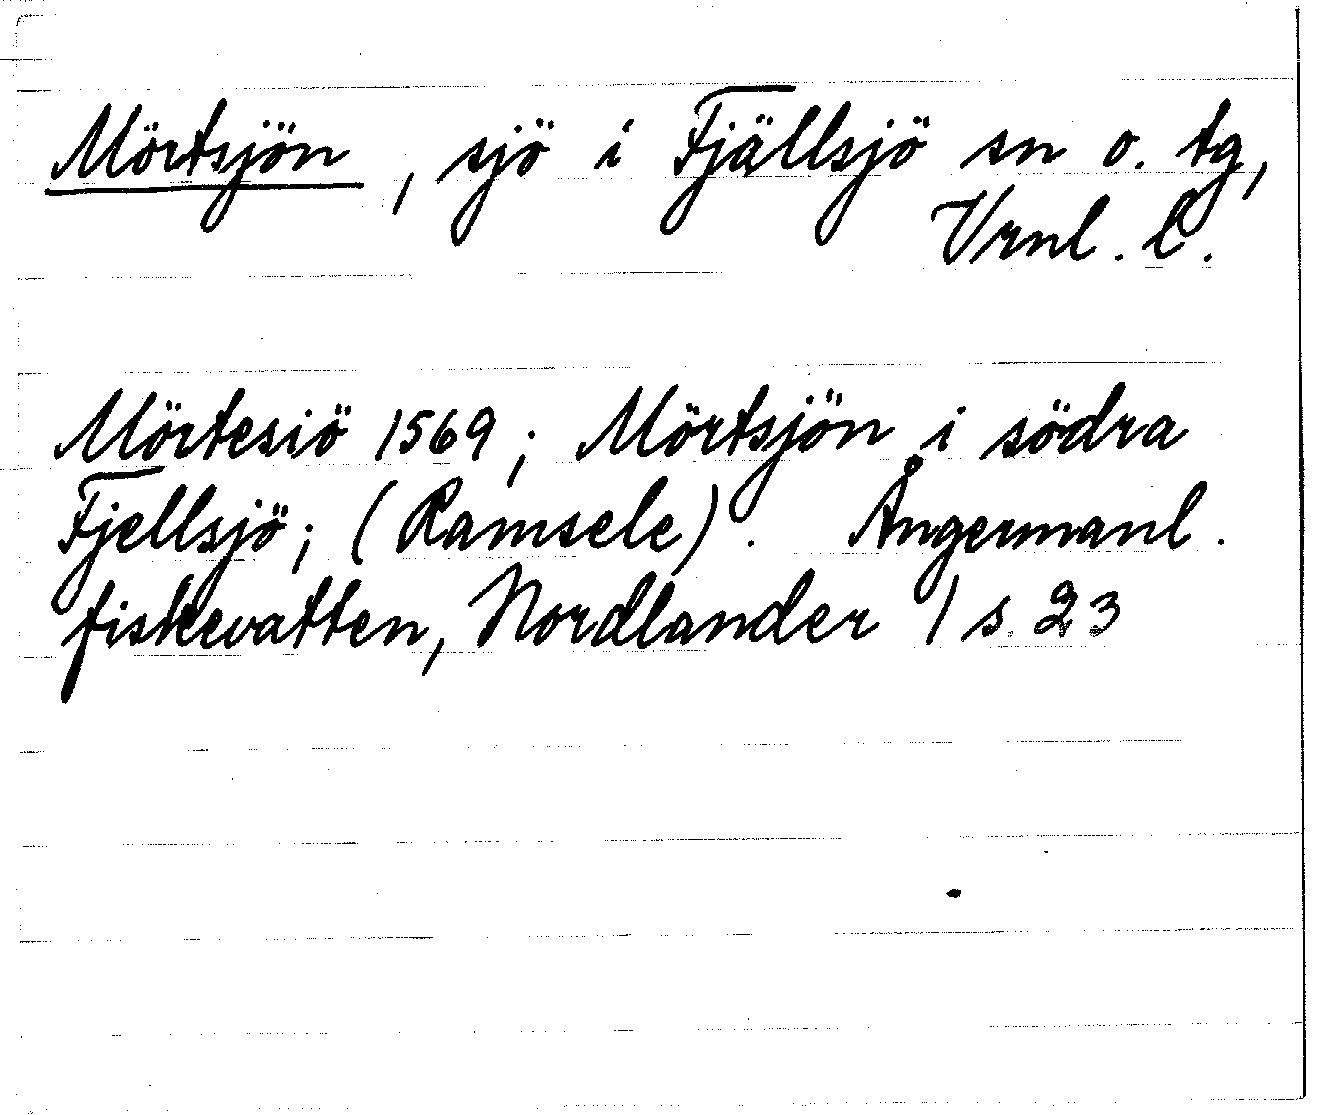 Mörtsjön, sjö i Fjällsjö sn o. tg,
Vrnl. l.
Mörtesiö 1569; Mörtsjön i södra
Fjellsjö; (Ramsele). Ångermanl.
fiskevatten, Nordlander / s. 23